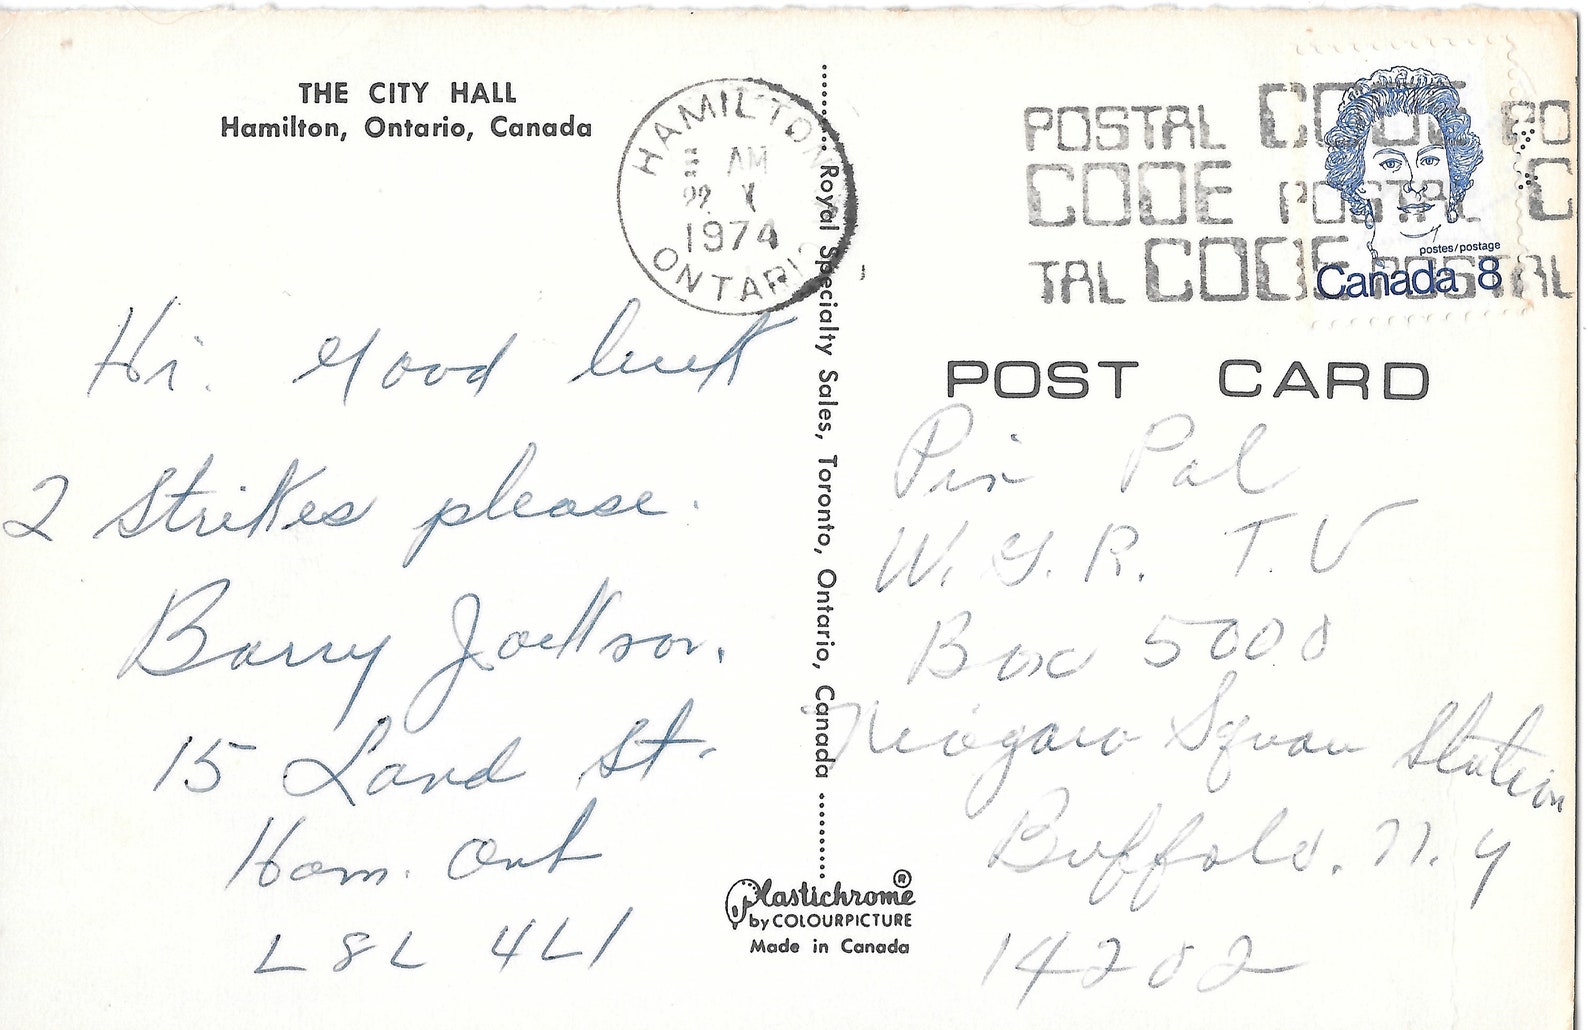 THE CITY HALL
Hamilton, Ontario, Canada
HAMILTON
AM
22 X
1974
ONTARIO
POSTAL CODE PO
CODE POSTAL C
TAL CODE POSTAL
postes/postage
Canada 8
Hi. Good luck
2 Strikes please.
Barry Jackson.
15 Land St.
Ham. Ont
L8L 4L1
Royal Specialty Sales, Toronto, Ontario, Canada
Plastichrome ®
by COLOURPICTURE
Made in Canada
POST CARD
Pin Pal
W. G. R. T.V
Box 5000
Niagara Square Station
Buffalo. N.Y
14202